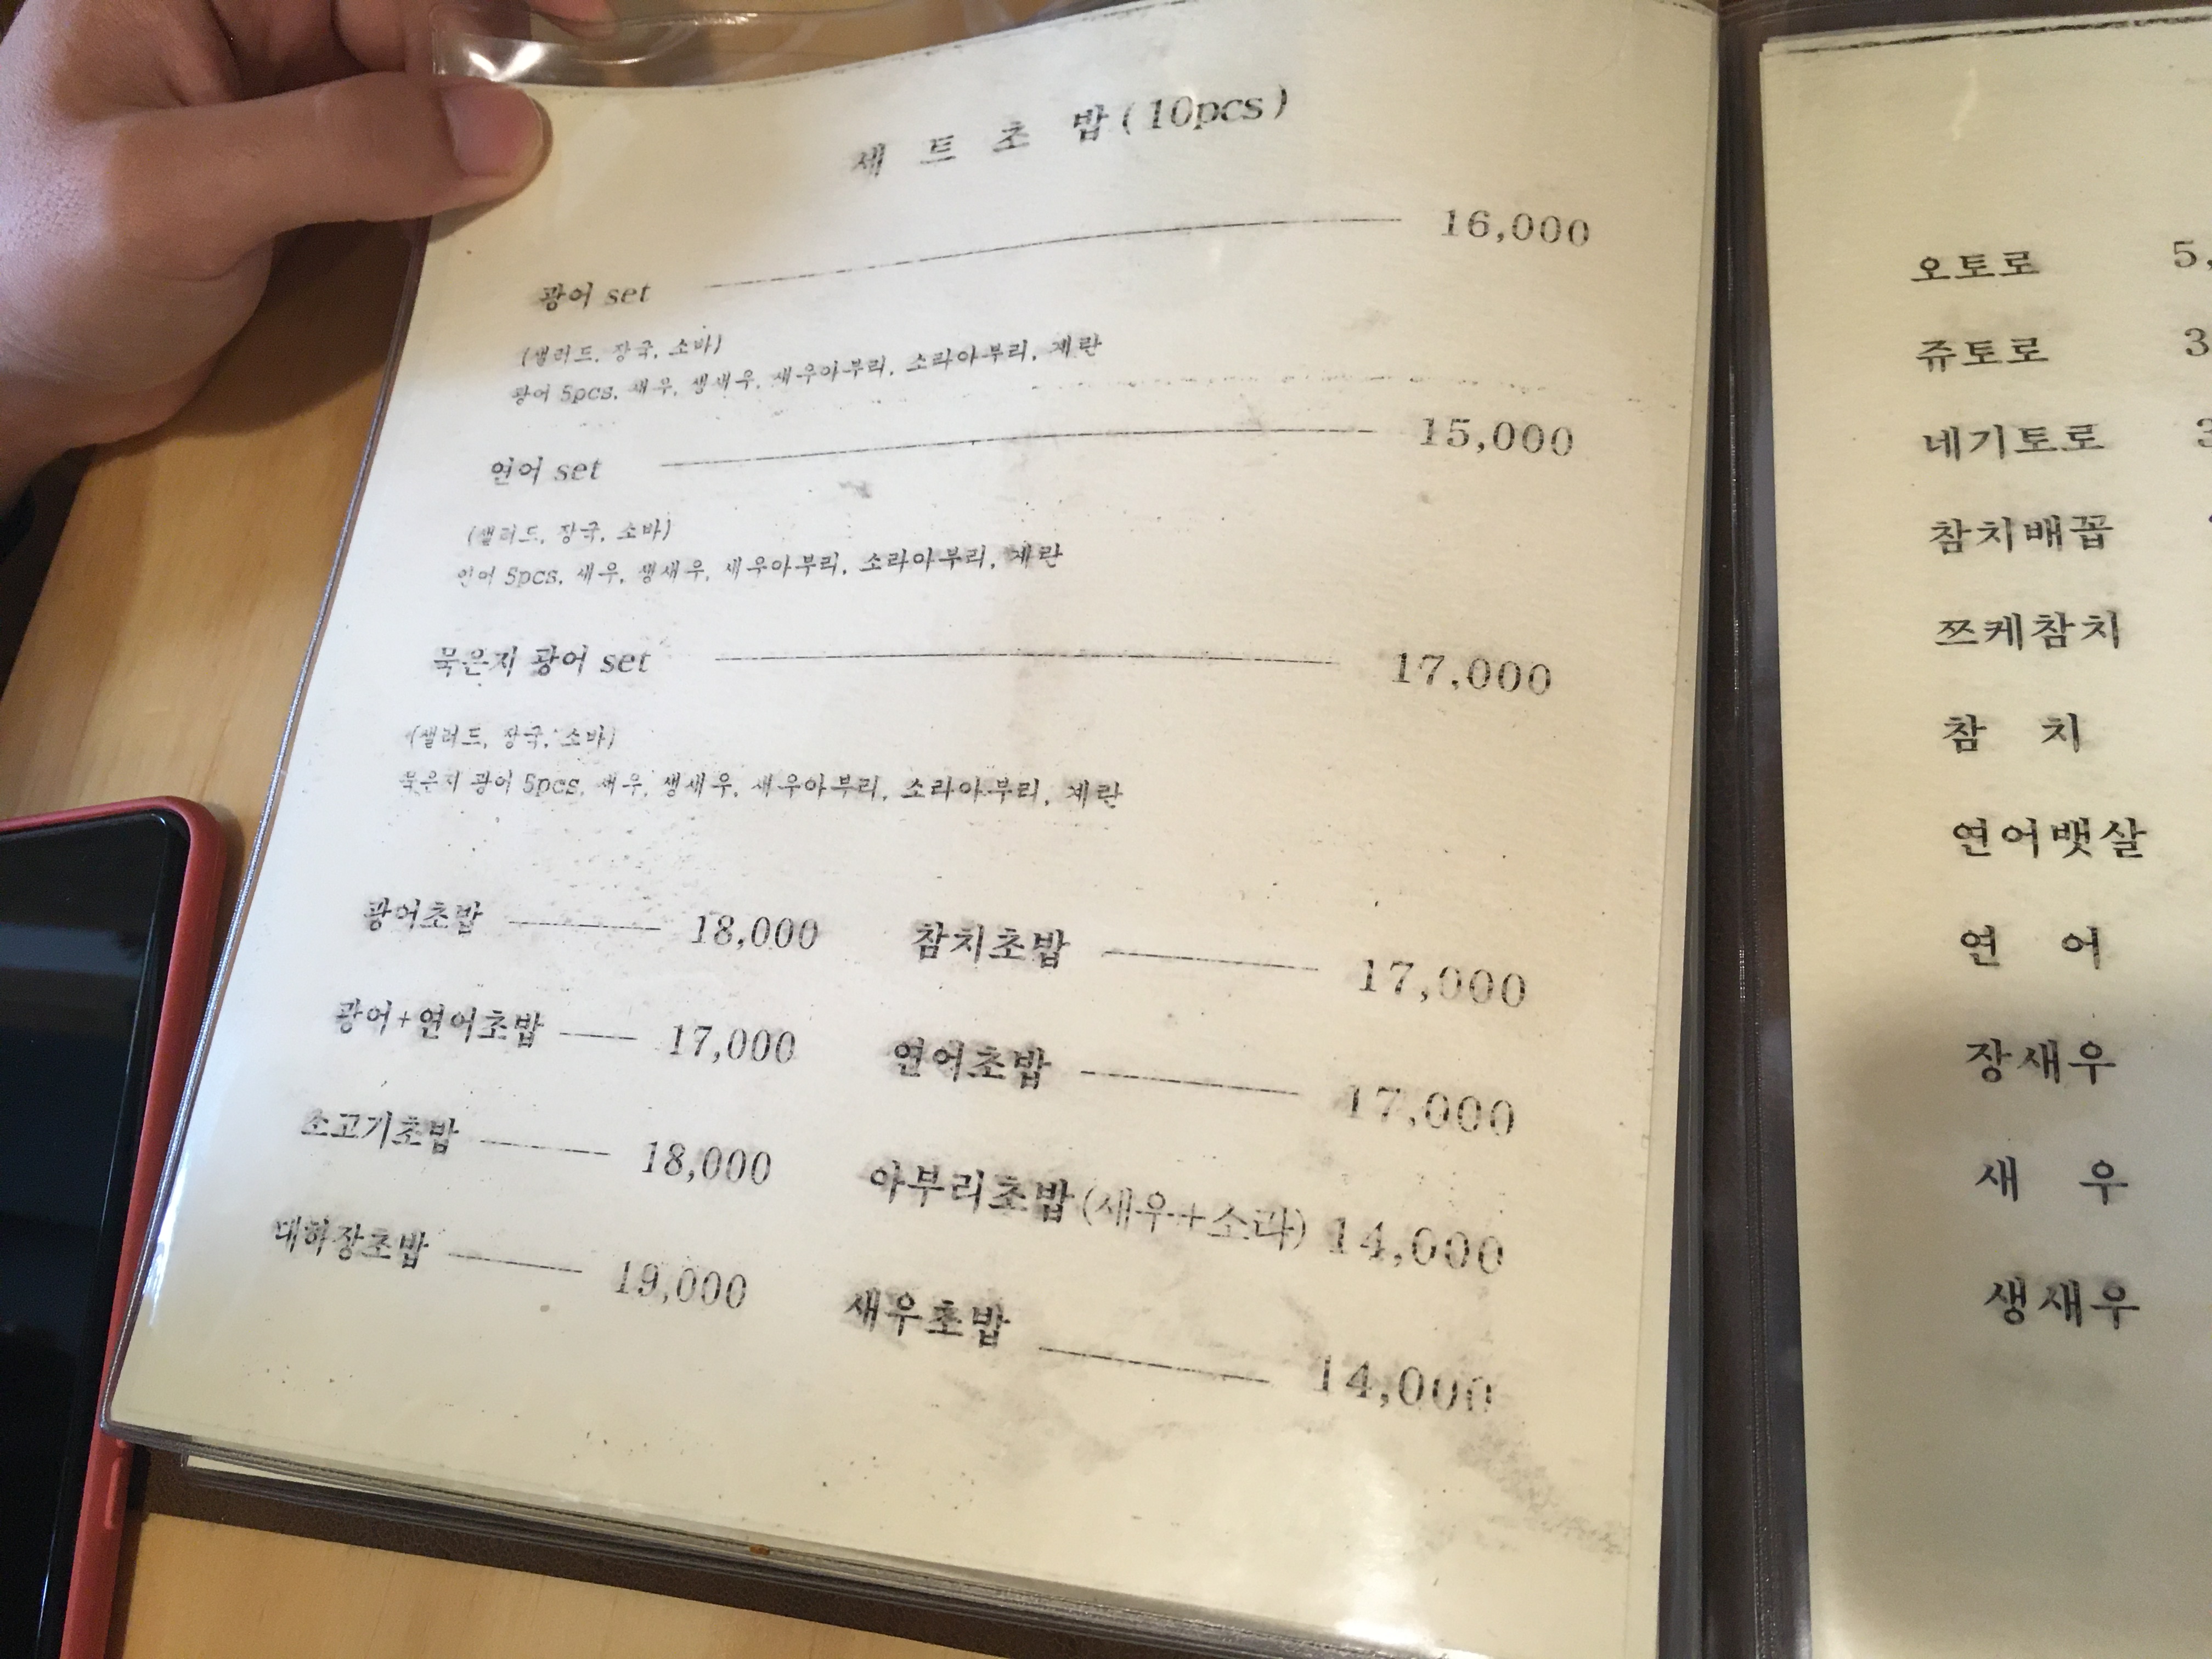 세 트 초 밥 (10pcs)
광어 set 16,000
(샐러드, 장국, 소바)
광어 5pcs, 새우, 생새우, 새우아부리, 소라아부리, 계란
연어 set 15,000
(샐러드, 장국, 소바)
연어 5pcs, 새우, 생새우, 새우아부리, 소라아부리, 계란
묵은지 광어 set 17,000
(샐러드, 장국, 소바)
묵은지 광어 5pcs, 새우, 생새우, 새우아부리, 소라아부리, 계란
광어초밥 18,000
광어+연어초밥 17,000
소고기초밥 18,000
대하장초밥 19,000
참치초밥 17,000
연어초밥 17,000
아부리초밥(새우+소라) 14,000
새우초밥 14,000
오토로 5,
쥬토로 3
네기토로 3
참치배꼽
쯔케참치
참 치
연어뱃살
연 어
장새우
새 우
생새우